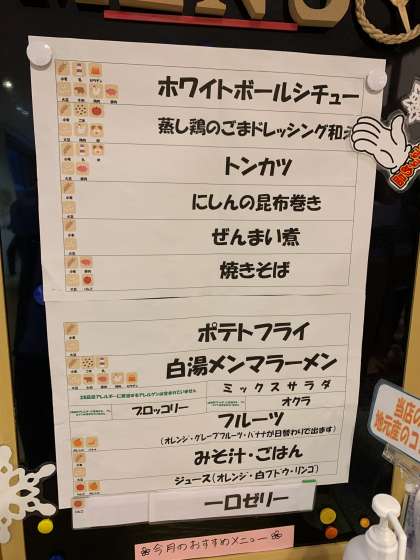 MENU
ホワイトボールシチュー
蒸し鶏のごまドレッシング和え
トンカツ
にしんの昆布巻き
ぜんまい煮
焼きそば
ポテトフライ
白湯メンマラーメン
ミックスサラダ
ブロッコリー
オクラ
フルーツ
(オレンジ・グレープフルーツ・バナナが日替わりで出ます)
みそ汁・ごはん
ジュース(オレンジ・白ブドウ・リンゴ)
一口ゼリー
今月のおすすめメニュー
当店の
地元産のコ